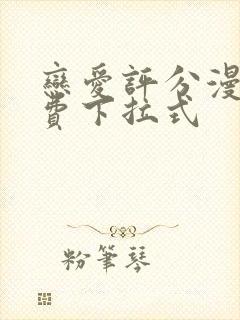 戀愛評分漫
費下拉式
粉筆琴